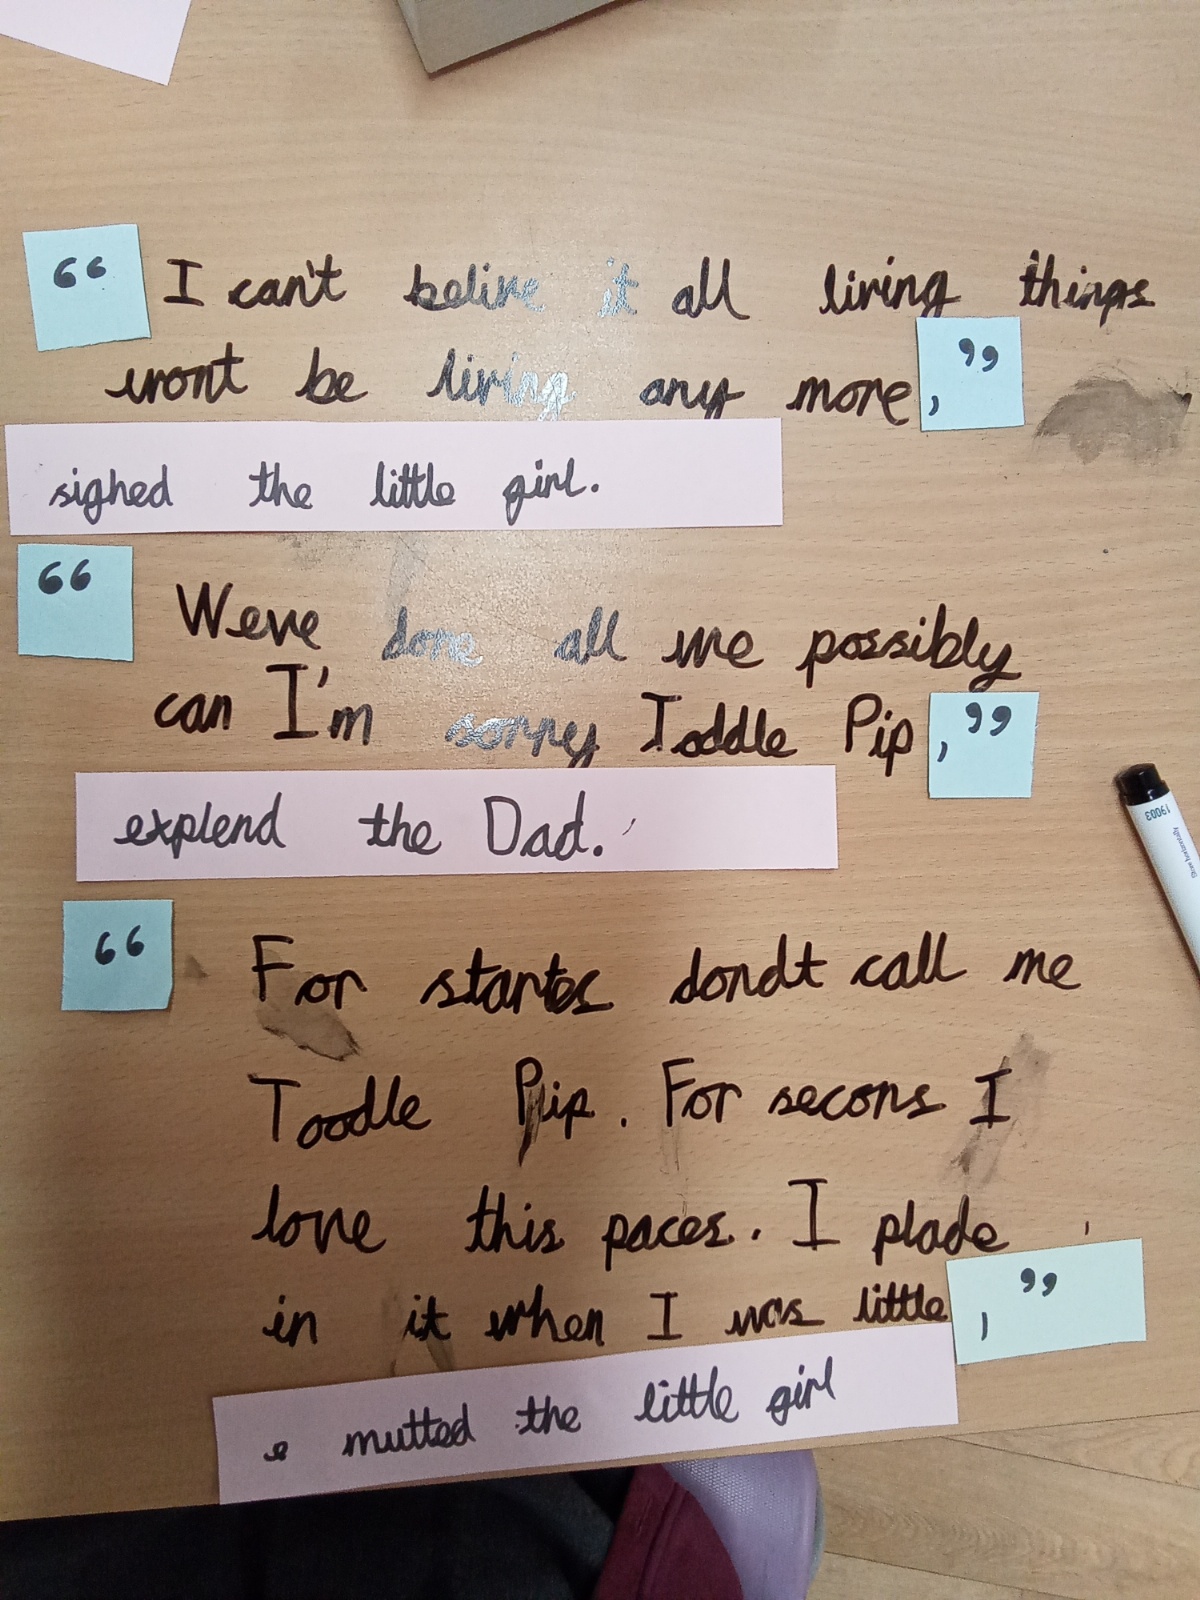 “ I can't belive it all living things
wont be living any more,”
sighed the little girl.
“ Weve done all we possibly
can I'm sorry Toddle Pip,”
explend the Dad.
“ For startes dondt call me
Toodle Pip. For secons I
love this paces. I plade
in it when I was little,”
e mutted the little girl
19003
Store horizontally